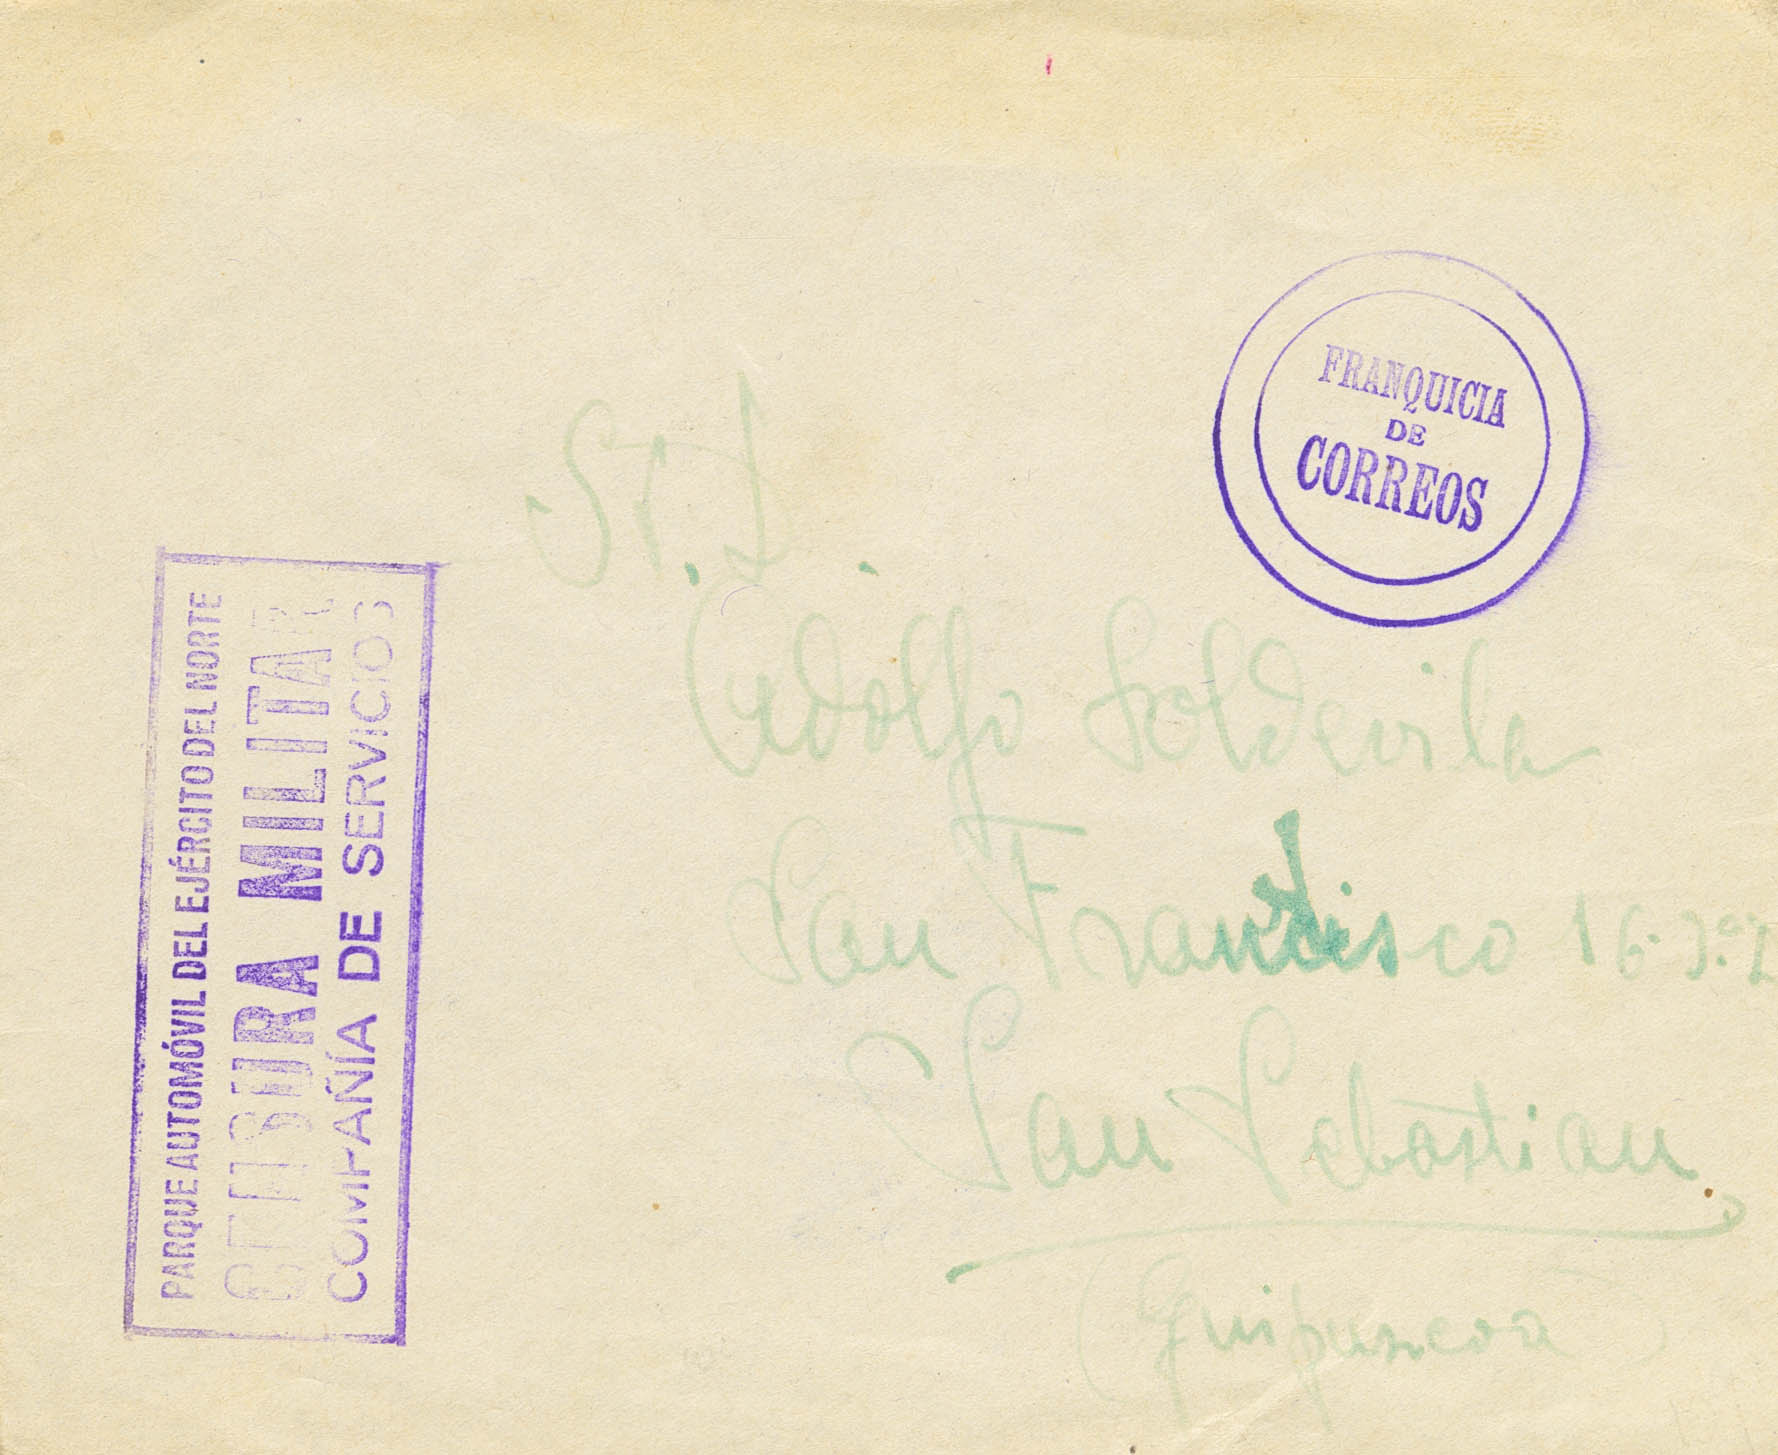 FRANQUICIA
DE
CORREOS
PARQUE AUTOMÓVIL DEL EJÉRCITO DEL NORTE
CENSURA MILITAR
COMPAÑÍA DE SERVICIOS
Sr. D.
Adolfo Soldevila
San Francisco 16-3º.
San Sebastian
(Guipuzcoa)